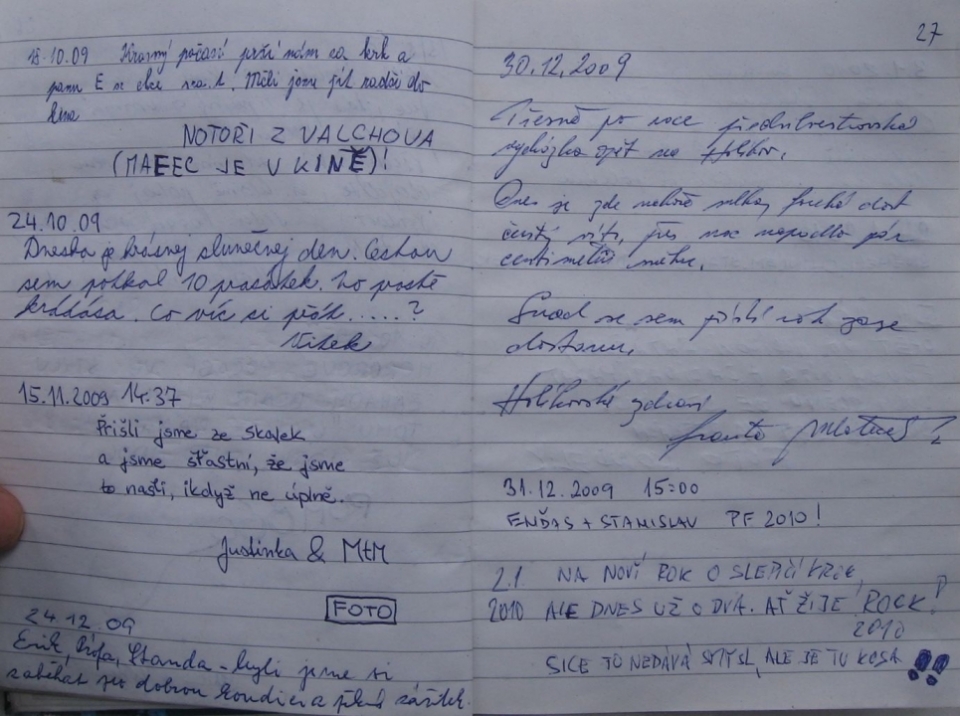 18.10.09 Krásný počasí prší nám za krk a
panu E se chce sra.t. Měli jsme jít radši do
kina
NOTOŘI Z VALCHOVA
(MAEEC JE V KINĚ)!
24.10.09
Dneska je krásnej slunečnej den. Cestou
sem potkal 10 prasátek. To prostě
krááása. Co víc si přát.....?
Vítek
15.11.2009 14:37
Přišli jsme ze Skalek
a jsme šťastní, že jsme
to našli, ikdyž ne úplně.
Justinka & MtM
FOTO
24 12 09
Erik, Standa - byli jsme si
zaběhat pro dobrou kondici a pěkný zážitek.
27
30.12.2009
Přesně po roce předsilvestrovská
vycházka opět na Holíkov.
Dnes je zde mlha, fouká dost
čistý vítr, přes noc napadlo pár
centimetrů sněhu.
Snad se sem příští rok zase
dostanu.
Holíkovské zdraví
31.12.2009 15:00
ENĎAS + STANISLAV PF 2010!
2.1. NA NOVÍ ROK O SLEPIČÍ KROK,
2010 ALE DNES UŽ O DVA. AŤ ŽIJE ROCK!
2010
SICE TO NEDÁVÁ SMYSL, ALE JE TU KOSA !!